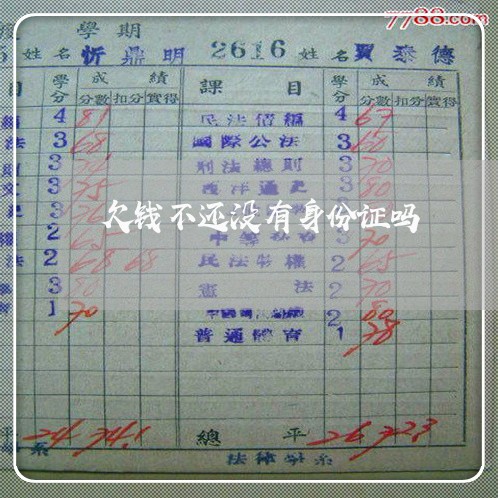 7788.com
學期
姓名 忻鼎明 2616 姓名 賈泰德
目 學分 成績 課目 學分 成績
分數 扣分 實得 分數 扣分 實得
4 81 民法債編 4 67
法 3 68 國際公法 3 60
3 刑法總則 3 70
3 75 西洋通史 3 80
3
欠钱不还没有身份证吗
2 3 70
法 2 68 68 民法物權 2 65
3 80 憲法 2 70
1 70 2 80
普通體育 1 78
平 24 74.1 總平 26 72.3
系 法律學系